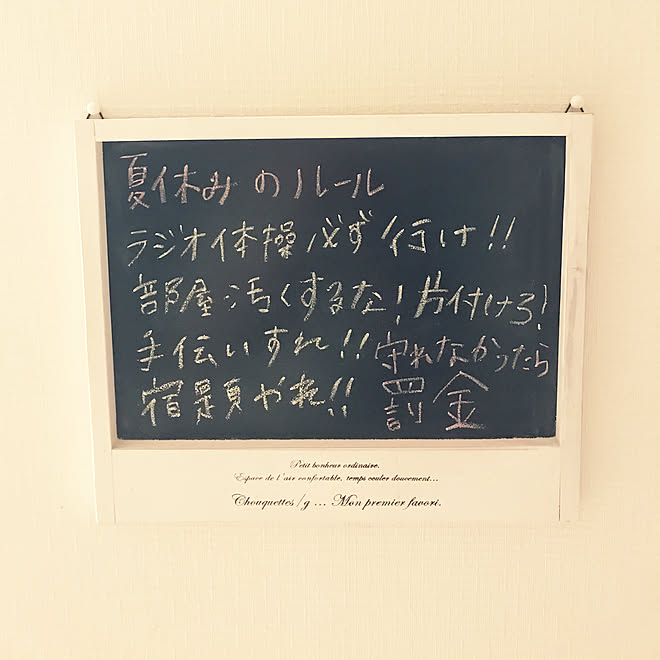 夏休みのルール
ラジオ体操必ず行け!!
部屋活くするな!片付けろ!
手伝いすれ!!守れなかったら
宿題やれ!!罰金
Petit bonheur ordinaire.
Espace de l'air confortable, temps couler doucement...
Chouquettes/g ... Mon premier favori.